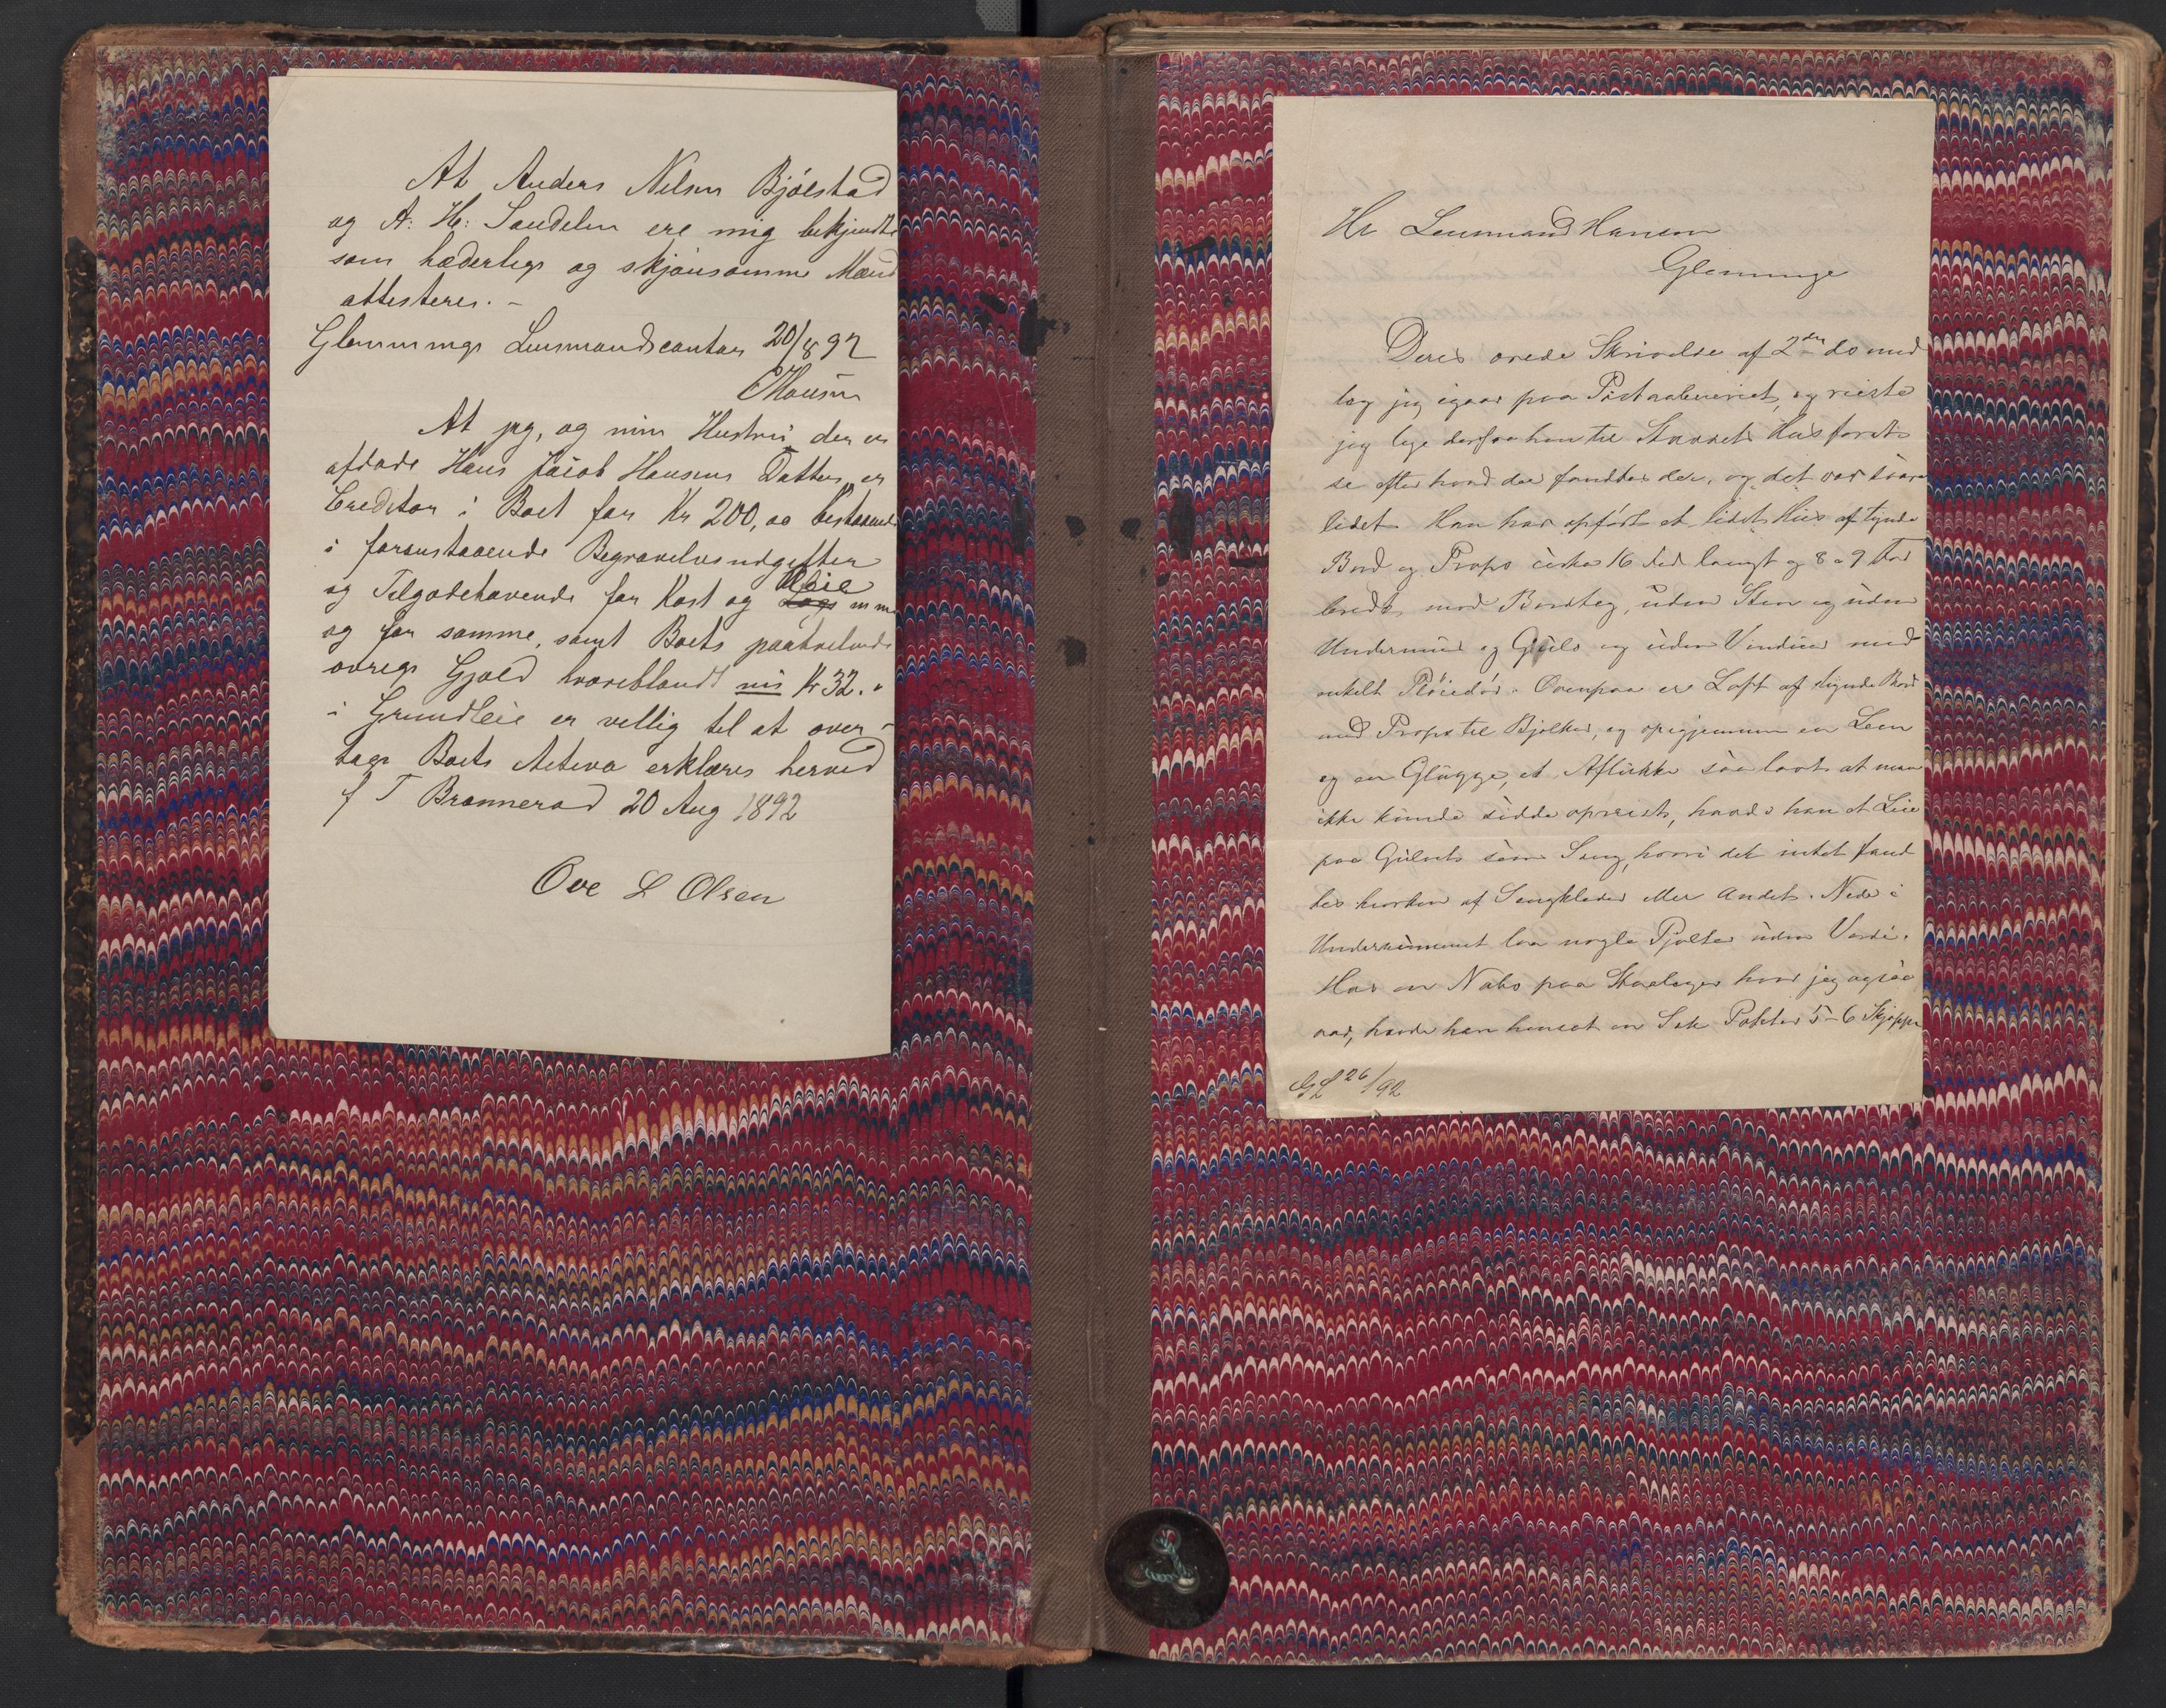 At Anders Nilsen Bjølstad
og A: H: Sandelin ere mig bekjendte
som hæderlige og skjønsomme Mænd
attesteres. -
Glemminge Lensmandscontor 20/8 92
CHansen
At jeg, og min Hustru, der er
afdøde Hans Jacob Hansens Datter, er
Creditor i Boet for Kr 200,00 bestaaende
i foranstaaende Begravelsesudgifter
og Tilgodehavende for Kost og Leie mm
og for samme, samt Boets paahvilende
øvrige Gjæld hvoriblandt Kr 32.
i Grundleie er villig til at over-
tage Boets Activa erklæres herved
p T Brønnerød 20 Aug 1892
Ove L Olsen
Hr Lensmand Hansen
Glemminge
Deres ærede Skrivelse af 2den ds mod
tog jeg igaar paa Postaaberiet, og reiste
jeg lige derfra hen til Huus forat
se efter hvad der fandtes der, og det var svært
lidet. Han har opført et lidet Huus af tynde
Bord og Props cirka 16 Fod langt og 8 a 9 Fod
bredt, med Bordtag, uden Sten og uden
Undermuur og Gulv og uden Vinduer med
enkelt Pløiedør. Ovenpaa er Loft af tynde Bord
med Props til Bjelker, og opigjennem en Lem
og en Glugge, et Aflukke saa lavt at man
ikke kunde sidde opreist, havde han et Leie
paa Gulvet som Seng, hvori det intet fand
tes hverken af Sengklæder eller Andet. Nede i
Underrummet laa nogle Pjalter uden Værdi.
Hos en Nabo paa hvor jeg ogsaa
var, havde han hensat en Sæk Poteter 5-6 Skjæpper
26/92